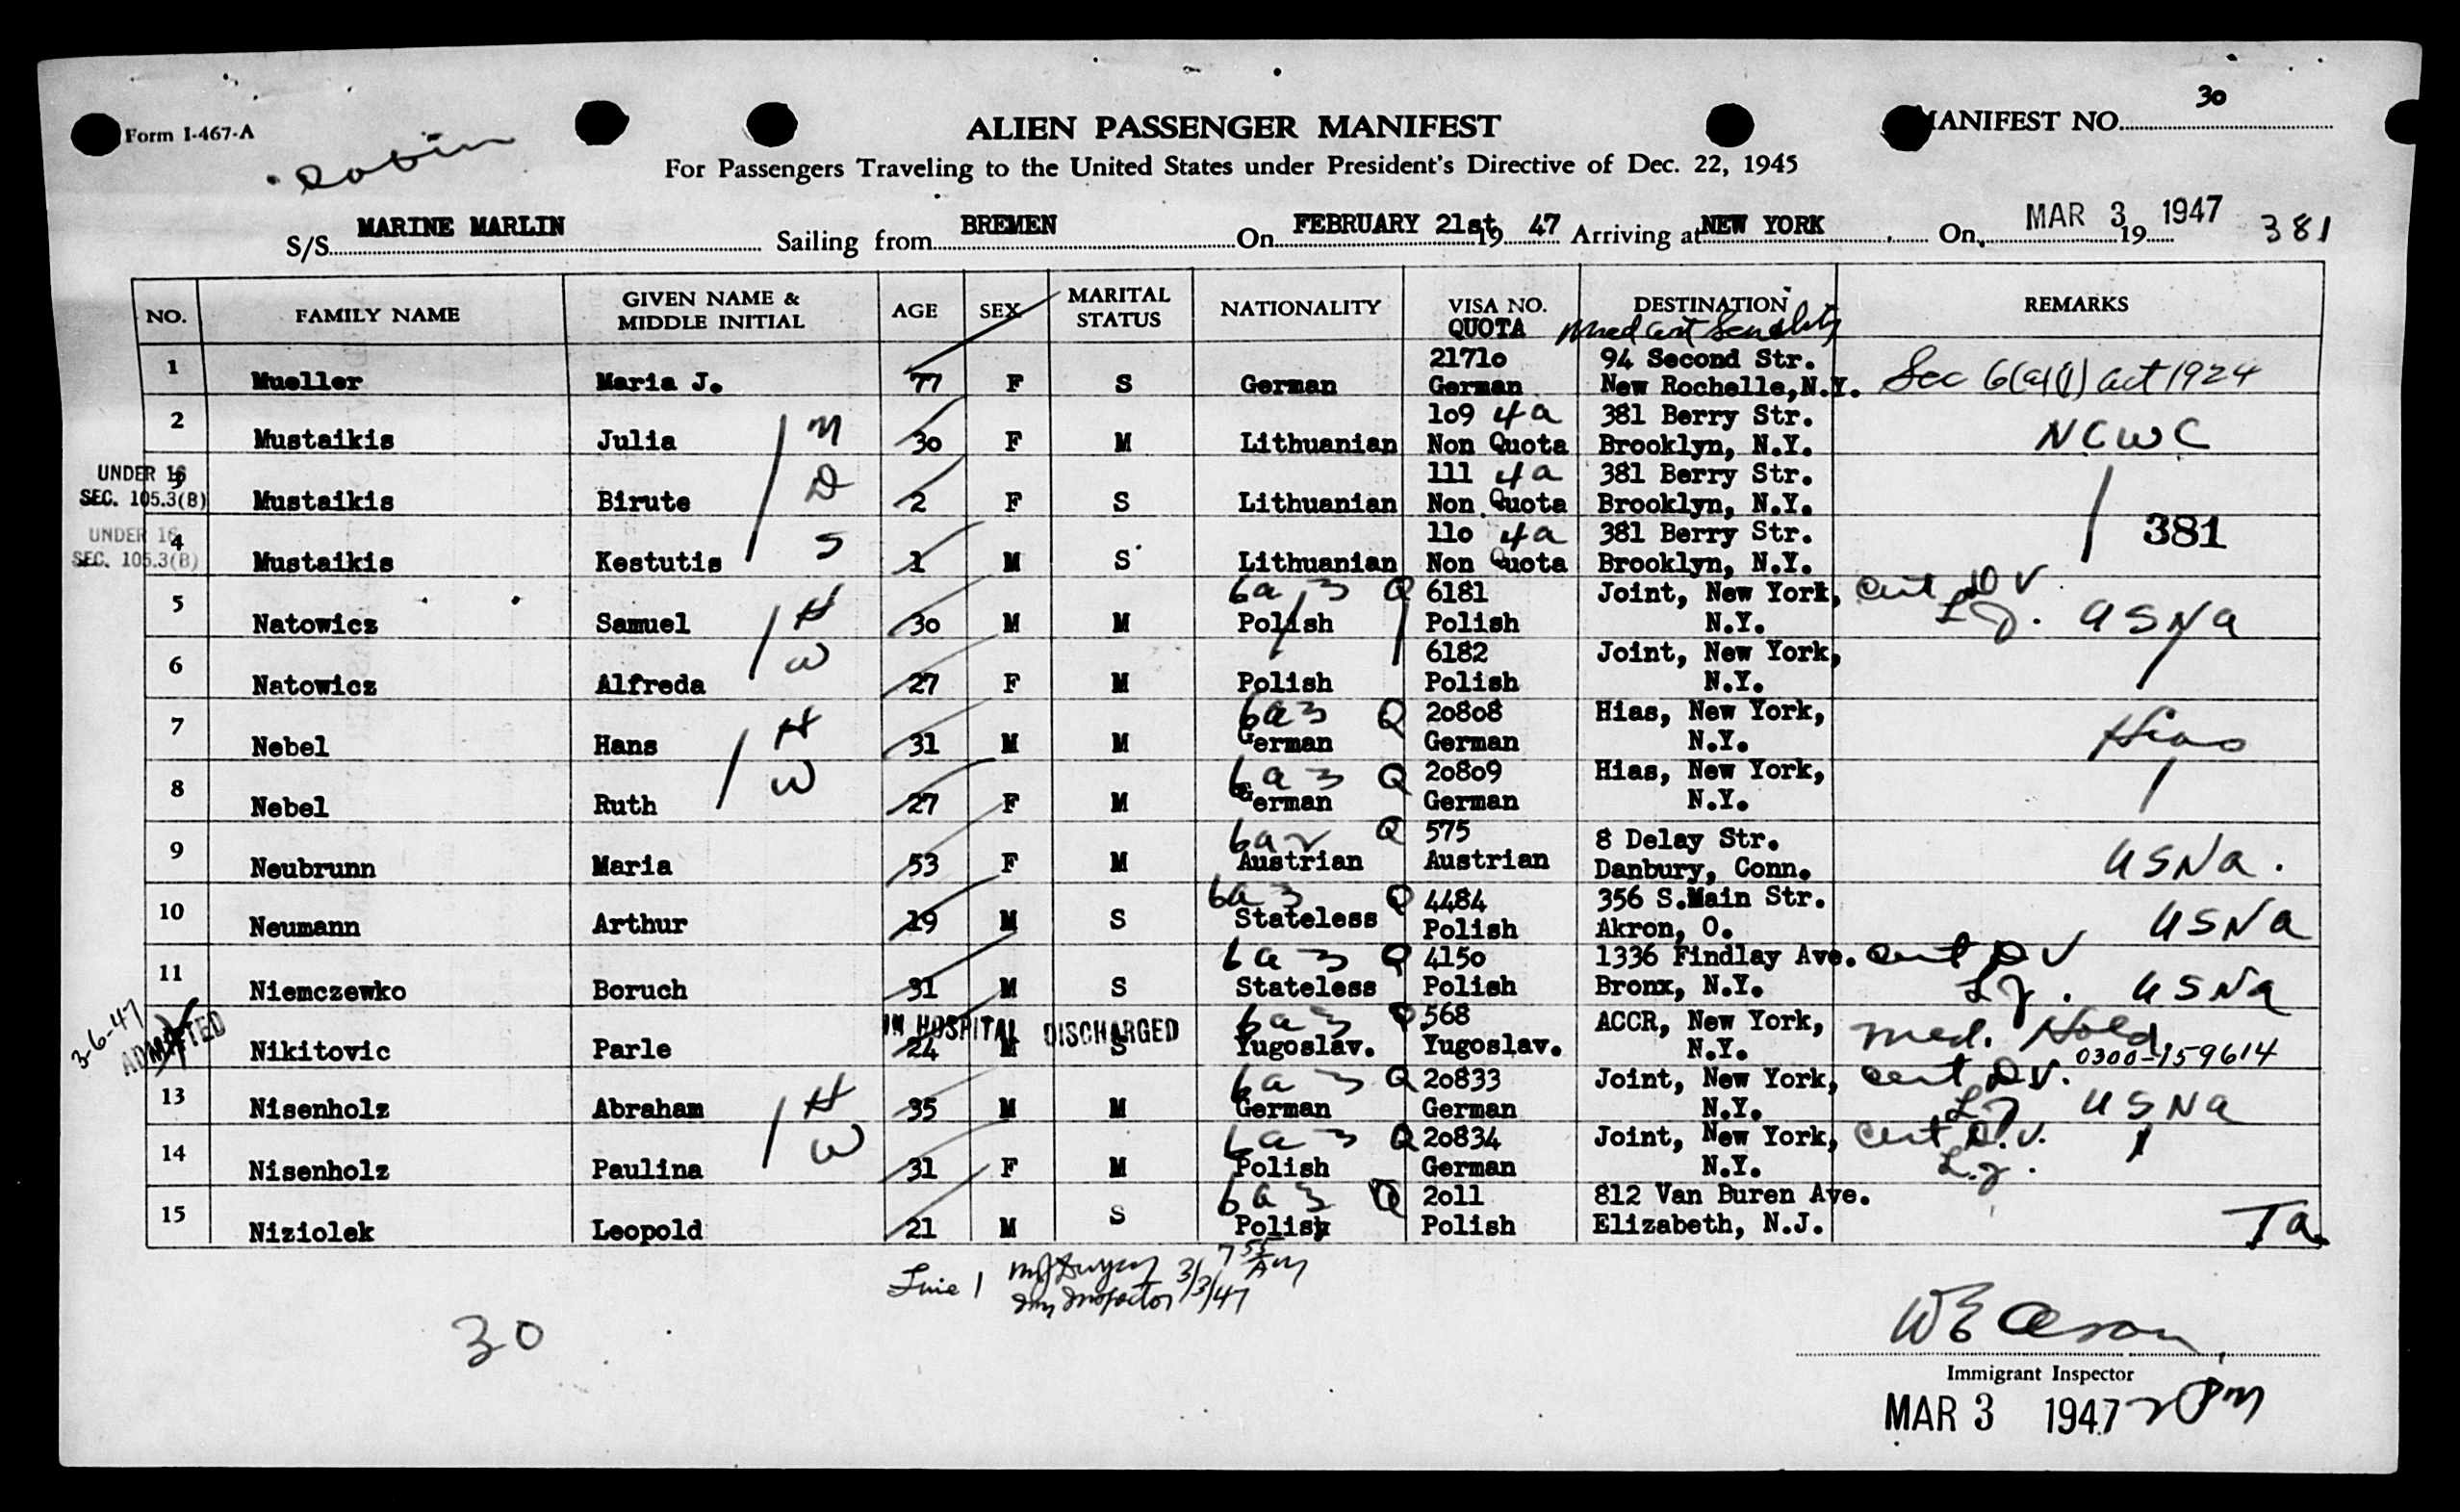 30
Form I-467-A
ALIEN PASSENGER MANIFEST
MANIFEST NO.
For Passengers Traveling to the United States under President's Directive of Dec. 22, 1945
S/S MARINE MARLIN Sailing from BREMEN On FEBRUARY 21st 19 47 Arriving at NEW YORK On MAR 3 19 1947 381
NO. FAMILY NAME GIVEN NAME & MIDDLE INITIAL AGE SEX MARITAL STATUS NATIONALITY VISA NO. QUOTA DESTINATION REMARKS
Med Cert Senility
21710 94 Second Str.
1 Mueller Maria J. 77 F S German German New Rochelle, N.Y. Sec 6(a)(1) act 1924
109 4a 381 Berry Str.
2 Mustaikis Julia M 30 F M Lithuanian Non Quota Brooklyn, N.Y. NCWC
UNDER 16 111 4a 381 Berry Str.
SEC. 105.3(B) 3 Mustaikis Birute D 2 F S Lithuanian Non Quota Brooklyn, N.Y.
UNDER 16 110 4a 381 Berry Str. 381
SEC. 105.3(B) 4 Mustaikis Kestutis S 1 M S Lithuanian Non Quota Brooklyn, N.Y.
6a 3 Q 6181 Joint, New York, Cert DV
5 Natowicz Samuel H 30 M M Polish Polish N.Y. USNA
6182 Joint, New York,
6 Natowicz Alfreda W 27 F M Polish Polish N.Y.
6a3 Q 20808 Hias, New York,
7 Nebel Hans H 31 M M German German N.Y. Hias
6a 3 Q 20809 Hias, New York,
8 Nebel Ruth W 27 F M German German N.Y.
6a2 Q 575 8 Delay Str.
9 Neubrunn Maria 53 F M Austrian Austrian Danbury, Conn. USNA.
6a 3 Q 4484 356 S.Main Str.
10 Neumann Arthur 19 M S Stateless Polish Akron, O. USNA
6a 3 Q 4150 1336 Findlay Ave. Cert DV
11 Niemczewko Boruch 31 M S Stateless Polish Bronx, N.Y. USNA
3-6-47 ADMITTED IN HOSPITAL DISCHARGED 6a 3 Q 568 ACCR, New York, Med. Hold
Nikitovic Parle 24 M S Yugoslav. Yugoslav. N.Y. 0300-159614
6a 3 Q 20833 Joint, New York, Cert DV.
13 Nisenholz Abraham H 35 M M German German N.Y. USNA
6a 3 Q 20834 Joint, New York, Cert D.V.
14 Nisenholz Paulina W 31 F M Polish German N.Y.
6a 3 Q 2011 812 Van Buren Ave.
15 Niziolek Leopold 21 M S Polish Polish Elizabeth, N.J. Ta
Line 1 3/3/47 7 55 AM
Imm Inspector
30
Immigrant Inspector
MAR 3 1947 2 PM